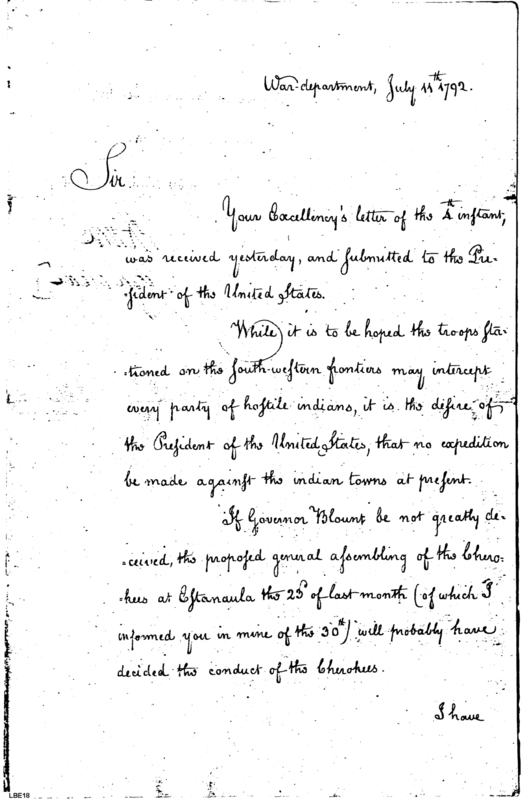 War-department, July 11th 1792.
Sir
Your Excellency's letter of the 4th instant,
was received yesterday, and submitted to the Pre-
-sident of the United States.
While it is to be hoped the troops sta-
-tioned on the south-western frontiers may intercept
every party of hostile indians, it is the desire of
the President of the United States, that no expedition
be made against the indian towns at present.
If Governor Blount be not greatly de-
-ceived, the proposed general assembling of the Chero-
-kees at Estanaula the 23d of last month (of which I
informed you in mine of the 30th) will probably have
decided the conduct of the Cherokees.
I have
LBE18